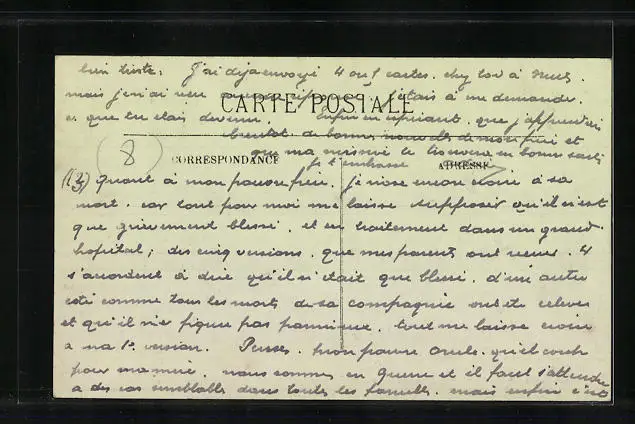 bien triste. J'ai déjà envoyé 4 ou 5 cartes. chez toi à
mais je n'ai reçu aucune réponse. j'étais à me demander.
ce que tu étais devenu. Enfin en espérant que j'apprendrai
CARTE POSTALE
bientôt de bonnes nouvelles de mon frère et
que ma missive te trouvera en bonne santé
je t'embrasse
(8)
CORRESPONDANCE
ADRESSE
Quant à mon pauvre frère. je n'ose encore croire à sa
mort. car tout pour moi me laisse supposer qu'il n'est
que grièvement blessé. et en traitement dans un grand
hopital; des cinq versions. que mes parents ont reçues. 4
s'accordent à dire qu'il n'était que blessé. d'un autre
côté comme tous les morts de sa compagnie ont été relevés
et qu'il n'y figure pas parmi eux. tout me laisse croire
à ma 1e version. Penses. mon pauvre Oncle. quel coup
pour ma mère. nous sommes en guerre et il faut s'attendre
à des cas semblables dans toutes les familles. mais enfin c'est